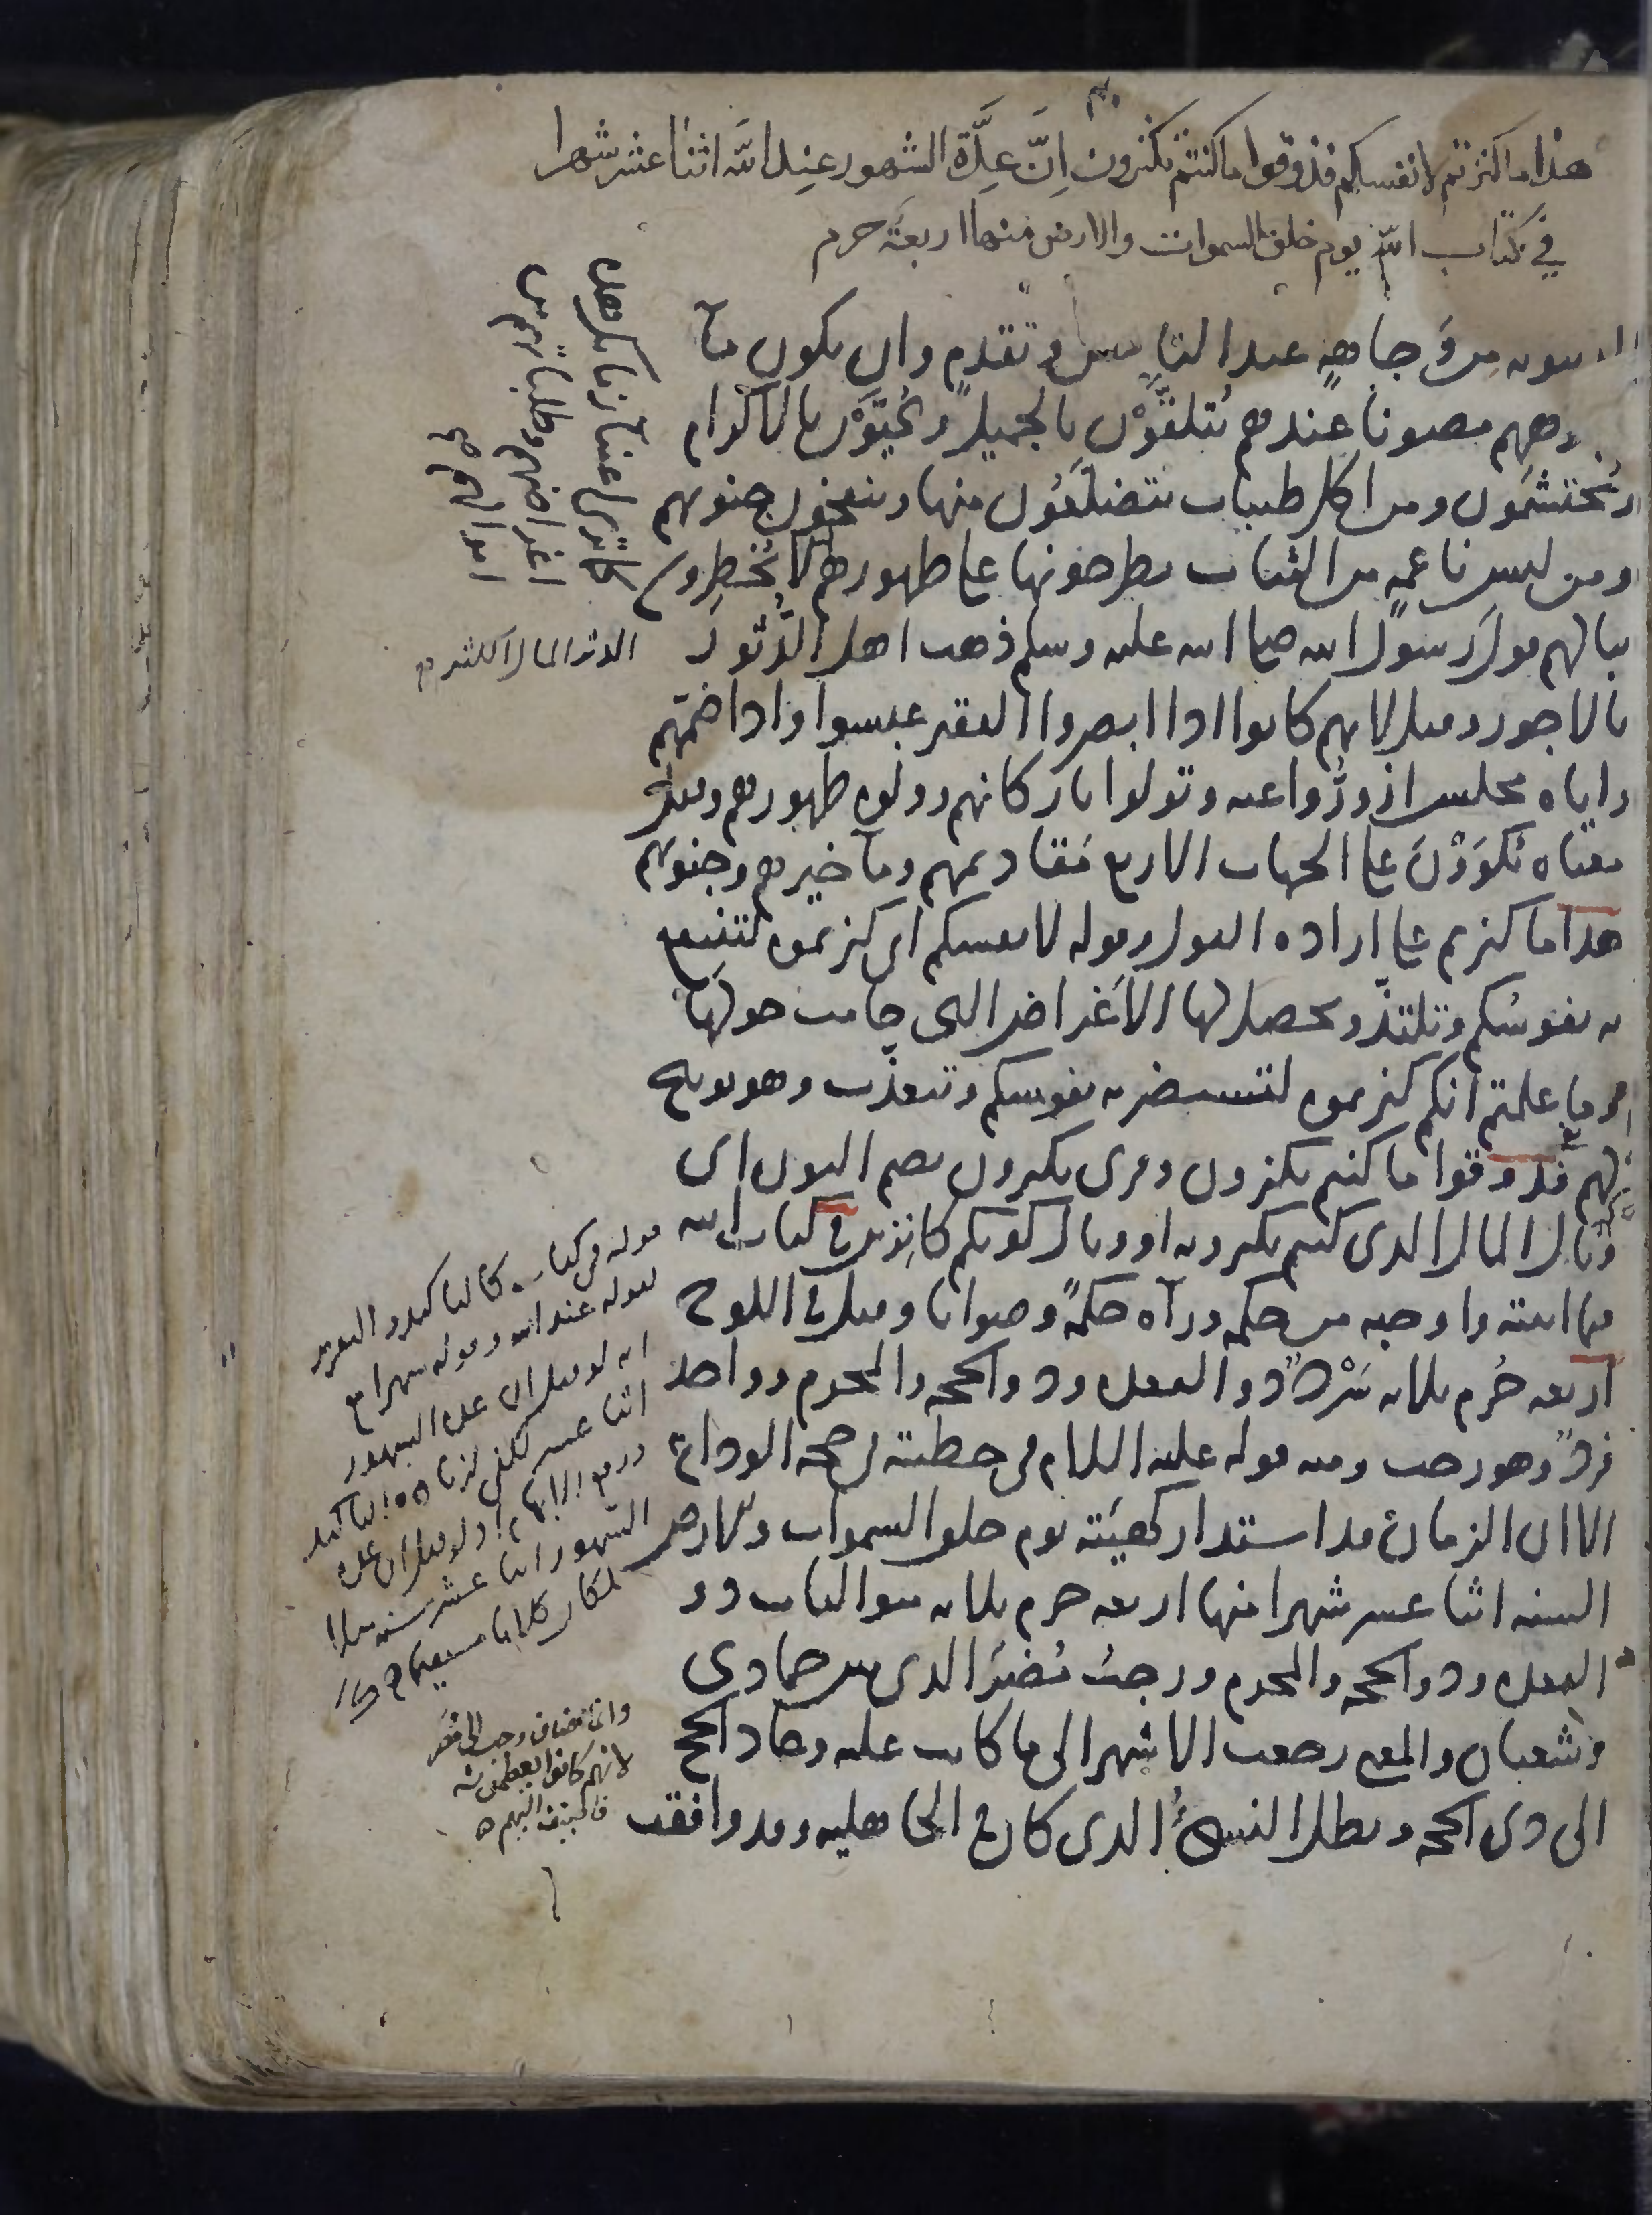 هذا ما كنزتم لانفسكم فذوقوا ما كنتم تكنزون اِنَّ عِدَّة الشهور عند الله اثنا عشر شهرا
في كتاب الله يوم خلق السموات والارض منها اربعة حرم
من وجاهةٍ عند الناس وتقدم وان يكون مآ
وجههم مصونا عندهم يُتلقَّوْن بالجميل ويُحَيَّوْن بالاكرام
ويُحتشمون ومن اكل طيبات يتضلعون منها وينفخون جنوبهم
ومن لبس ناعمةٍ من الثياب يطرحونها على ظهورهم لا يُخطِرون
ببالهم قول رسول الله صلى الله عليه وسلم ذهب اهل الدُّثور
بالاجور وقيل لانهم كانوا اذا ابصروا الفقير عبسوا واذا ضمّهم
واياه مجلس ازورُّوا عنه وتولوا باركانهم وولوه ظهورهم وقيل
معناه يُكوَوْنَ على الجهات الاربع مقاديمهم ومآخيرهم وجنوبهم
هذا ما كنزتم على ارادة القول وقوله لانفسكم اى كنزتموه لتنتفع
به نفوسكم وتلتذّ ويحصل لها الاغراض التى حامت حولها
وما علمتم انكم كنزتموه لتستضر به نفوسكم وتتعذب وهو توبيخ
لهم فذوقوا ما كنتم تكنزون وقرى تكنزون بضم النون اى
وبال المال الذى كنتم تكنزونه او وبال كونكم كانزين في كتاب الله
فيما اثبته واوجبه من حكمه ورآه حكمةً وصوابا وقيل في اللوح
اربعة حُرم ثلاثة سَرْدٌ ذو القعدة وذو الحجة والمحرم وواحد
فردٌ وهو رجب ومنه قوله عليه السلام فى خطبته فى حجة الوداع
الا ان الزمان قد استدار كهيئته يوم خلق السموات والارض
السنة اثنا عشر شهرا منها اربعة حرم ثلاثة متواليات ذو
القعدة وذو الحجة والمحرم ورجبُ مُضَرَ الذى بين جمادى
وشعبان والمعنى رجعت الاشهر الى ما كانت عليه وعاد الحج
الى ذى الحجة وبطل النسىءُ الذى كان في الجاهلية وقد وافقت
الدثر المال الكثير
قوله فى كتاب كالتاكيد والتقرير
لقوله عند الله وقوله شهرا مع
انه لو قيل ان عدة الشهور
اثنا عشر لكفى لزيادة التاكيد
ورفع الابهام اذ لو قيل ان عدة
الشهور اثنا عشر سنة مثلا
لكان كلاما مستقيما
وانما يضاف رجب الى مضر
لانهم كانوا يعظمونه
فاضيف اليهم